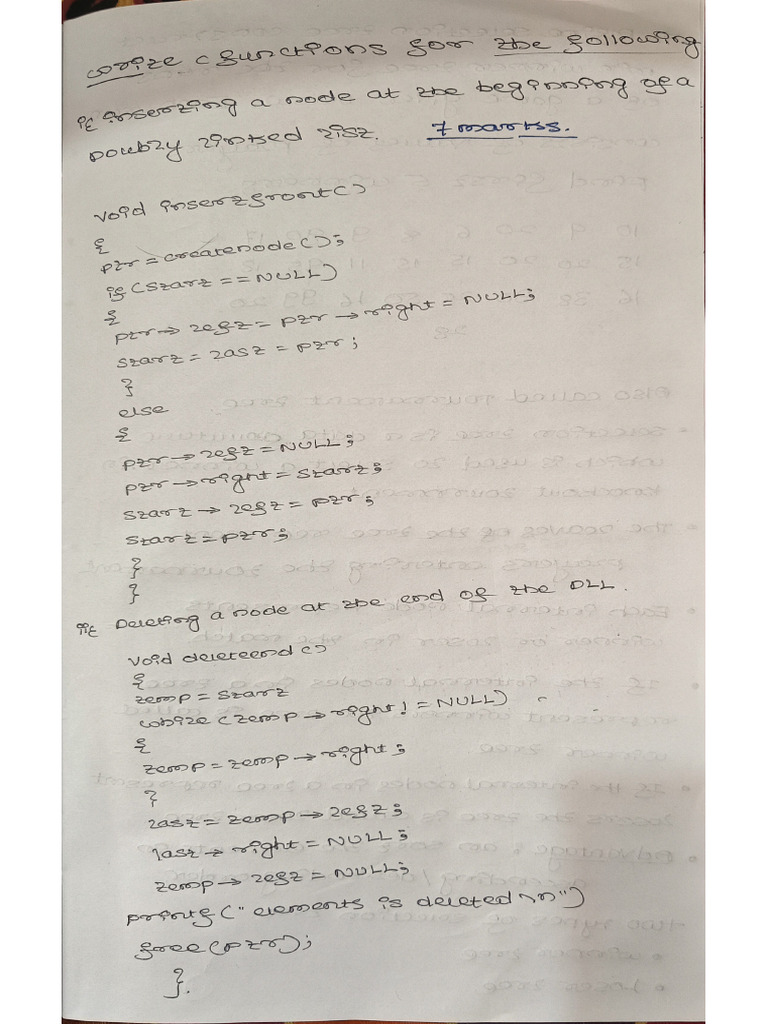 write c functions for the following
i) inserting a node at the beginning of a
Doubly linked list. 7 marks.
void insertfront()
{
ptr = createnode();
if (start == NULL)
{
ptr → left = ptr → right = NULL;
start = last = ptr;
}
else
{
ptr → left = NULL;
ptr → right = start;
start → left = ptr;
start = ptr;
}
}
ii) Deleting a node at the end of the DLL.
void deleteend()
{
temp = start
while (temp → right != NULL)
{
temp = temp → right;
}
last = temp → left;
last → right = NULL;
temp → left = NULL;
printf (" elements is deleted \n")
free(ptr);
}.